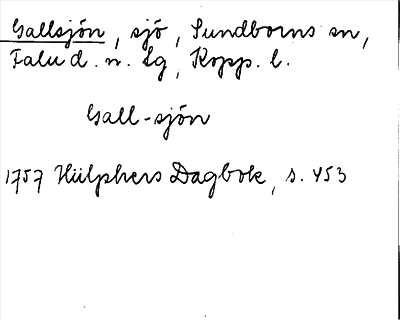 Gallsjön, sjö, Sundborns sn,
Falu d. n. Lg, Kopp. l.
Gall-sjön
1757 Hülphers Dagbok, s. 453